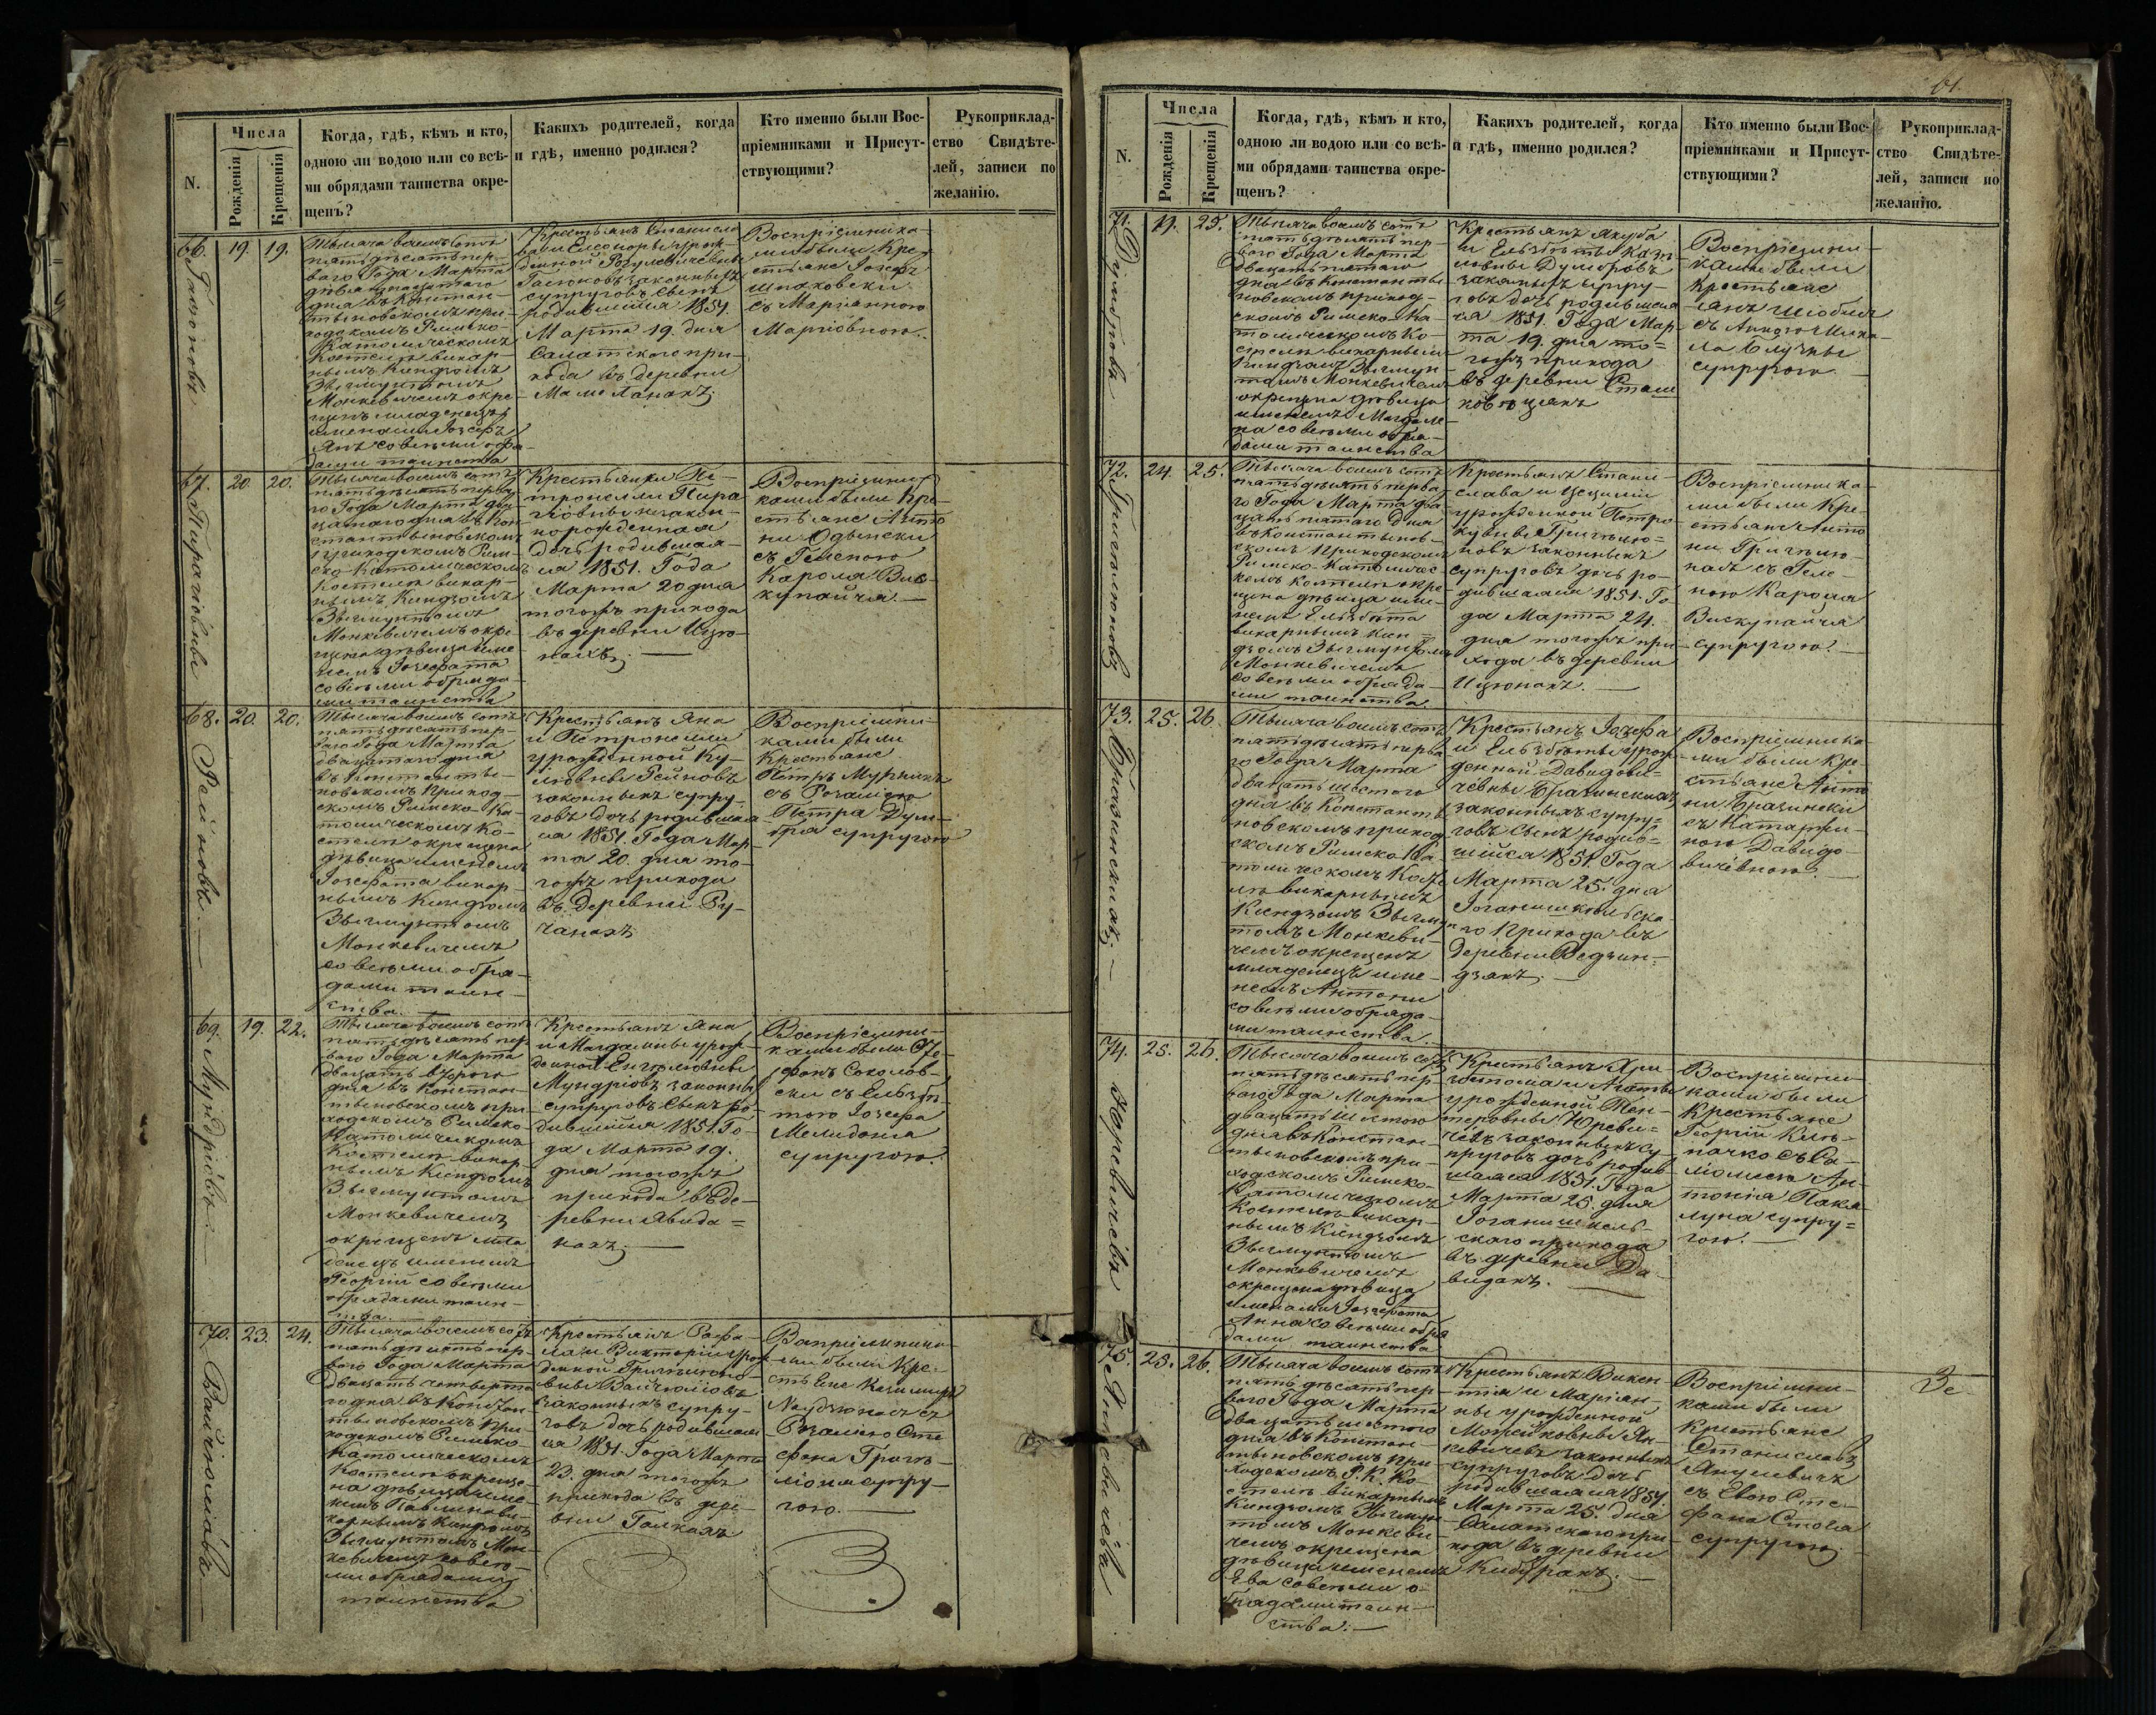 N.
Числа
Рожденія
Крещенія
Когда, гдѣ, кѣмъ и кто,
одною ли водою или со всѣ-
ми обрядами таинства окре-
щенъ?
Какихъ родителей, когда
и гдѣ, именно родился?
Кто именно были Вос-
пріемниками и Присут-
ствующими?
Рукоприклад-
ство Свидѣте-
лей, записи по
желанію.
66.
19.
19.
Тысяча восемь сотъ
пятьдесятъ пер-
ваго Года Марта
дня въ Констан-
тыновскомъ при-
ходскомъ Римско-
Католическомъ
Костелѣ викар-
нымъ Ксендзомъ
Зыгмунтомъ
Монкевичемъ окре-
щенъ младенецъ
именами Іозефъ
Янъ со всѣми обря-
дами таинства
Крестьянъ Станисла
законныхъ
супруговъ сынъ
родившійся 1851.
Марта 19. дня
Салатскаго при-
хода въ деревни
Воспріемника-
ми были Кре-
стьяне Іозефъ
съ Маріанною
67.
20.
20.
Тысяча восемь сотъ
пятьдесятъ перва
го Года Марта два
цатаго дня въ Кон
стантыновскомъ
приходскомъ Рим-
ско-Католическомъ
Костелѣ викар-
нымъ Ксендзомъ
Зыгмунтомъ
Монкевичемъ окре
щена дѣвица име
немъ Іозефата
со всѣми обряда-
ми таинства
Крестьянки Пе-
тронелли Пира
гіовны незакон-
норожденная
дочь родившая-
ся 1851. Года
Марта 20 дня
тогожъ прихода
въ деревни Ицю-
нахъ.
Воспріемни-
ками были Кре-
стьяне Анто
ни Одынски
съ Геленою
Кароля Вис-
купайтя.
68. Рейновъ.
20.
20.
Тысяча восемь сотъ
пятьдесятъ пер-
ваго Года Марта
двацатаго дня
въ Константы-
новскомъ Приход-
скомъ Римско Ка-
толическомъ Ко-
стелѣ окрещена
дѣвица именемъ
Іозефата викар-
нымъ Ксендзомъ
Зыгмунтомъ
Монкевичемъ
со всѣми обря-
дами таин-
ства.
Крестьянъ Яна
и Петронелли
урожденной Ку-
Рейновъ
законныхъ супру-
говъ дочь родившая
ся 1851. Года Мар-
та 20. дня то-
гожъ прихода
въ деревни Ру-
чанахъ
Воспріемни-
ками были
Крестьяне
Петръ
съ Розалією
Петра Дум-
бра супругою
69. Мундріовъ.
19.
22.
Тысяча восемь сотъ
пятьдесятъ пер
ваго Года Марта
двацать втораго
дня въ Констан-
тыновскомъ при-
ходскомъ Римско-
Католическомъ
Костелѣ викар-
нымъ Ксендзомъ
Зыгмунтомъ
Монкевичемъ
окрещенъ мла
денецъ именемъ
Георгій со всѣми
обрядами таин-
ства.
Крестьянъ Яна
и Магдалины урож-
денной
Мундріовъ законны
супруговъ сынъ ро-
дившійся 1851. Го-
да Марта 19.
дня тогожъ
прихода въ де-
ревни Явида-
нахъ.
Воспріемни-
ками были Сте-
фанъ Соколов-
ски съ Ельзбѣ-
тою Іозефа
супругою.
70.
23.
24.
Тысяча восемь сотъ
пятьдесятъ пер-
ваго Года Марта
двацать четверта
го дня въ Констан-
тыновскомъ при
ходскомъ Римско-
католическомъ
Костелѣ окреще-
на дѣвица име-
немъ Павлина ви-
карнымъ Ксендзомъ
Зыгмунтомъ Мон-
кевичемъ со всѣ-
ми обрядами
таинства
Крестьянъ Рафа-
ла и Викторіи урож
денной
законныхъ супру-
говъ дочь родившая
ся 1851. Года Марта
23. дня тогожъ
прихода въ дере-
вни Галкахъ
Воспріемника-
ми были Кре-
стьяне Казимиръ
съ
Розалією Сте
фана
супру-
гою.
61.
N.
Числа
Рожденія
Крещенія
Когда, гдѣ, кѣмъ и кто,
одною ли водою или со всѣ-
ми обрядами таинства окре-
щенъ?
Какихъ родителей, когда
и гдѣ, именно родился?
Кто именно были Вос-
пріемниками и Присут-
ствующими?
Рукоприклад-
ство Свидѣте-
лей, записи по
желанію.
71. Думбровъ
19.
25.
Тысяча восемь сотъ
пятьдесятъ пер-
ваго Года Марта
двацать пятаго
дня въ Константы
новскомъ приход-
скомъ Римско-Ка-
толическомъ Ко-
стелѣ викарнымъ
Ксендзомъ Зыгмун
томъ Монкевичемъ
окрещена дѣвица
именемъ Магдале-
на со всѣми обря-
дами таинства
Крестьянъ Якуба
и Ельзбѣты
Думбровъ
законныхъ супру-
говъ дочь родившая
ся 1851. Года Мар
та 19. дня то-
гожъ прихода
въ деревни
Воспріемни-
ками были
Крестьяне
съ Анною Миха-
ла
супругою.
72.
24.
25.
Тысяча восемь сотъ
пятьдесятъ перва
го Года Марта два
цать пятаго Дня
въ Константынов-
скомъ Приходскомъ
Римско-Католичес-
комъ костелѣ окре
щена дѣвица име-
немъ Ельзбѣта
викарнымъ Ксен-
дзомъ Зыгмунтомъ
Монкевичемъ
со всѣми обряда-
ми таинства.
Крестьянъ Стани-
слава и Цециліи
урожденной Петро-
законныхъ
супруговъ дочь ро-
дившаяся 1851. Го-
да Марта 24.
дня тогожъ при-
хода въ деревни
Ицюнахъ.
Воспріемника-
ми были Кре-
стьяне Анто
ни
съ Геле-
ною Кароля
Вискупайтя
супругою.
73. Бразинскихъ.
25.
26.
Тысяча восемь сотъ
пятьдесятъ перва
го Года Марта
двацать шестого
дня въ Константы
новскомъ приход
скомъ Римско Ка-
толическомъ Косте
лѣ викарнымъ
Ксендзомъ Зыгмун
томъ Монкеви-
чемъ окрещенъ
младенецъ име-
немъ Антони
со всѣми обряда-
ми таинства.
Крестьянъ Іозефа
и Ельзбѣты урож-
денной Давидови-
чевны Бразинскихъ
законныхъ супру-
говъ сынъ родив-
шійся 1851. Года
Марта 25. дня
Іоганишкельска-
го прихода въ
деревни Ведзин-
дзахъ.
Воспріемника-
ми были Кре-
стьяне Анто
ни Бразински
съ Катаржи-
ною Давидо-
вичевною.
74. Юревичевъ
25.
26.
Тысяча восемь сотъ
пятьдесятъ пер-
ваго Года Марта
двацать шестого
дня въ Констан-
тыновскомъ при-
ходскомъ Римско-
Католическомъ
Костелѣ викар-
нымъ Ксендзомъ
Зыгмунтомъ
Монкевичемъ
окрещена дѣвица
именами Іозефата
Анна со всѣми обря
дами таинства
Крестьянъ Хри-
зостома и Агаты
урожденной
Юреви-
чевъ законныхъ су-
пруговъ дочь родив
шаяся 1851. Года
Марта 25. дня
Іоганишкель-
скаго прихода
въ деревни Да-
видахъ.
Воспріемни-
ками были
Крестьяне
Георгій
съ Са-
ломією Ан-
тонія
супру-
гою.
75. Янкевичевъ
25.
26.
Тысяча восемь сотъ
пятьдесятъ пер-
ваго Года Марта
двацать шестого
дня въ Констан-
тыновскомъ При-
ходскомъ Р. К. Ко-
стелѣ викарнымъ
Ксендзомъ Зыгмун
томъ Монкеви-
чемъ окрещена
дѣвица именемъ
Ева со всѣми о-
брядами таин-
ства.
Крестьянъ Викен-
тія и Маріан-
ны урожденной
Можейковны Ян-
кевичевъ законныхъ
супруговъ дочь
родившаяся 1851.
Марта 25. дня
Салатскаго при-
хода въ деревни
Воспріемни-
ками были
Крестьяне
Станиславъ
Янулевичъ
съ Евою Сте-
фана
супругою.